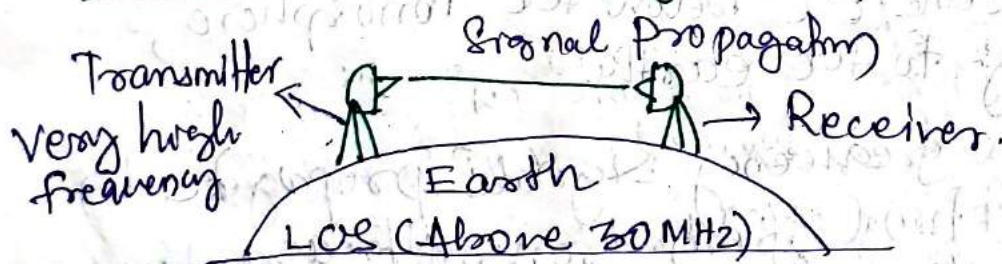 Signal Propagation
Transmitter
very high
frequency
Receiver.
Earth
LOS (Above 30 MHz)